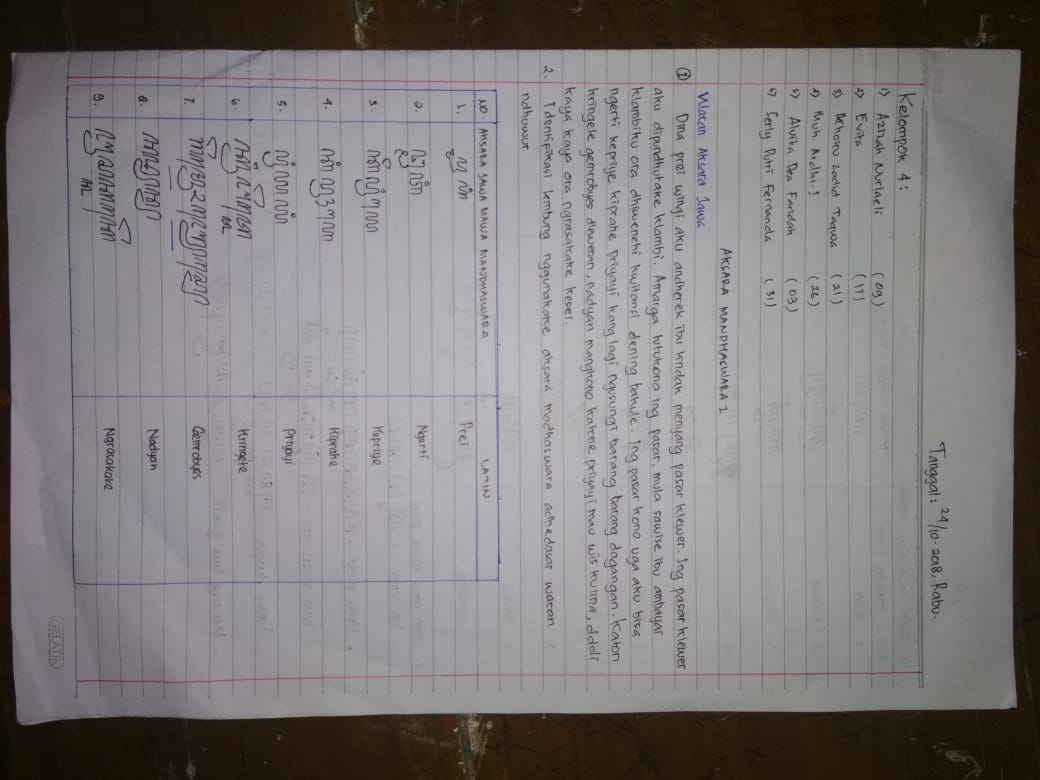 Tanggal: 24/10-2018, Rabu.
Kelompok 4:
1) Azizah Nurlaeli (09)
2) Evita (17)
3) Rehoinu Zadid Taqwa (21)
4) Muh Ardhi.I (26)
5) Alvita Dea Faridah (03)
6) Serly Putri Fernanda (31)
AKSARA MANDHASWARA 1
Wacan Aksara Jawa
① Dina prei wingi aku andherek ibu kndak menyang pasar klewer. Ing pasar klewer
aku dipundhutake klambi. Amarga tutukona ing pasar, mula sawise ibu ambayar
klambiku ora dhiwenehi kwitansi dening bakule. Ing pasar kono uga aku bisa
ngerti kepriye kiprahe priyayi kang lagi ngusungi barang barang dagangan. Katon
kringete gemrobyes dleweran, nadyan mangkono katone priyayi mau wis kulina, dddi
kaya kaya ora ngrasakake kesel.
2. Identifikasi tembung nggunakake aksara madhaswara adhedasar wacan
ndhuwur
NO. AKSARA JAWA MAWA MANDHASWARA LATIN
1. Prei
2. Ngerti
3. Kepriye
4. Kiprahe
5. Priyayi
6. Kringete
7. Gemrobyes
8. Nadyan
9. Ngrasakake
GELATIK